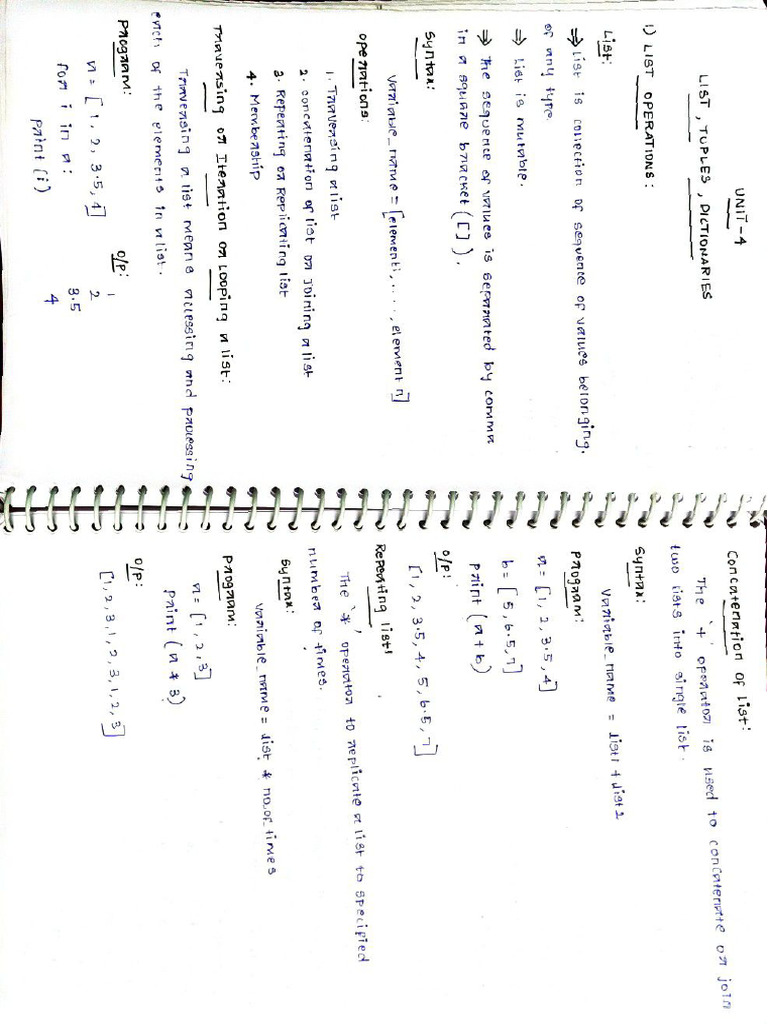 UNIT-4
LIST, TUPLES, DICTIONARIES
1) LIST OPERATIONS:
List:
⇒ List is collection of sequence of values belonging.
of any type
⇒ List is mutable.
⇒ The sequence of values is separated by comma
in a square bracket ([ ]).
Syntax:
Variable_name = [element1, ...., element n]
Operations:
1. Traversing a list
2. concatenation of list or Joining a list
3. Repeating or Replicating list
4. Membership
Traversing or Iteration or Looping a list:
Traversing a list means accessing and processing
each of the elements in a list.
Program:
a = [1, 2, 3.5, 4]
for i in a:
print (i)
O/P:
1
2
3.5
4
Concatenation of list:
The '+' operator is used to concatenate or join
two lists into single list.
Syntax:
Variable_name = list1 + list2
Program:
a = [1, 2, 3.5, 4]
b = [5, 6.5, 7]
print (a+b)
O/P:
[1, 2, 3.5, 4, 5, 6.5, 7]
Repeating list:
The '*' operator to replicate a list to specified
number of times.
Syntax:
Variable_name = list * no_of_times
Program:
a = [1, 2, 3]
print (a * 3)
O/P:
[1, 2, 3, 1, 2, 3, 1, 2, 3]